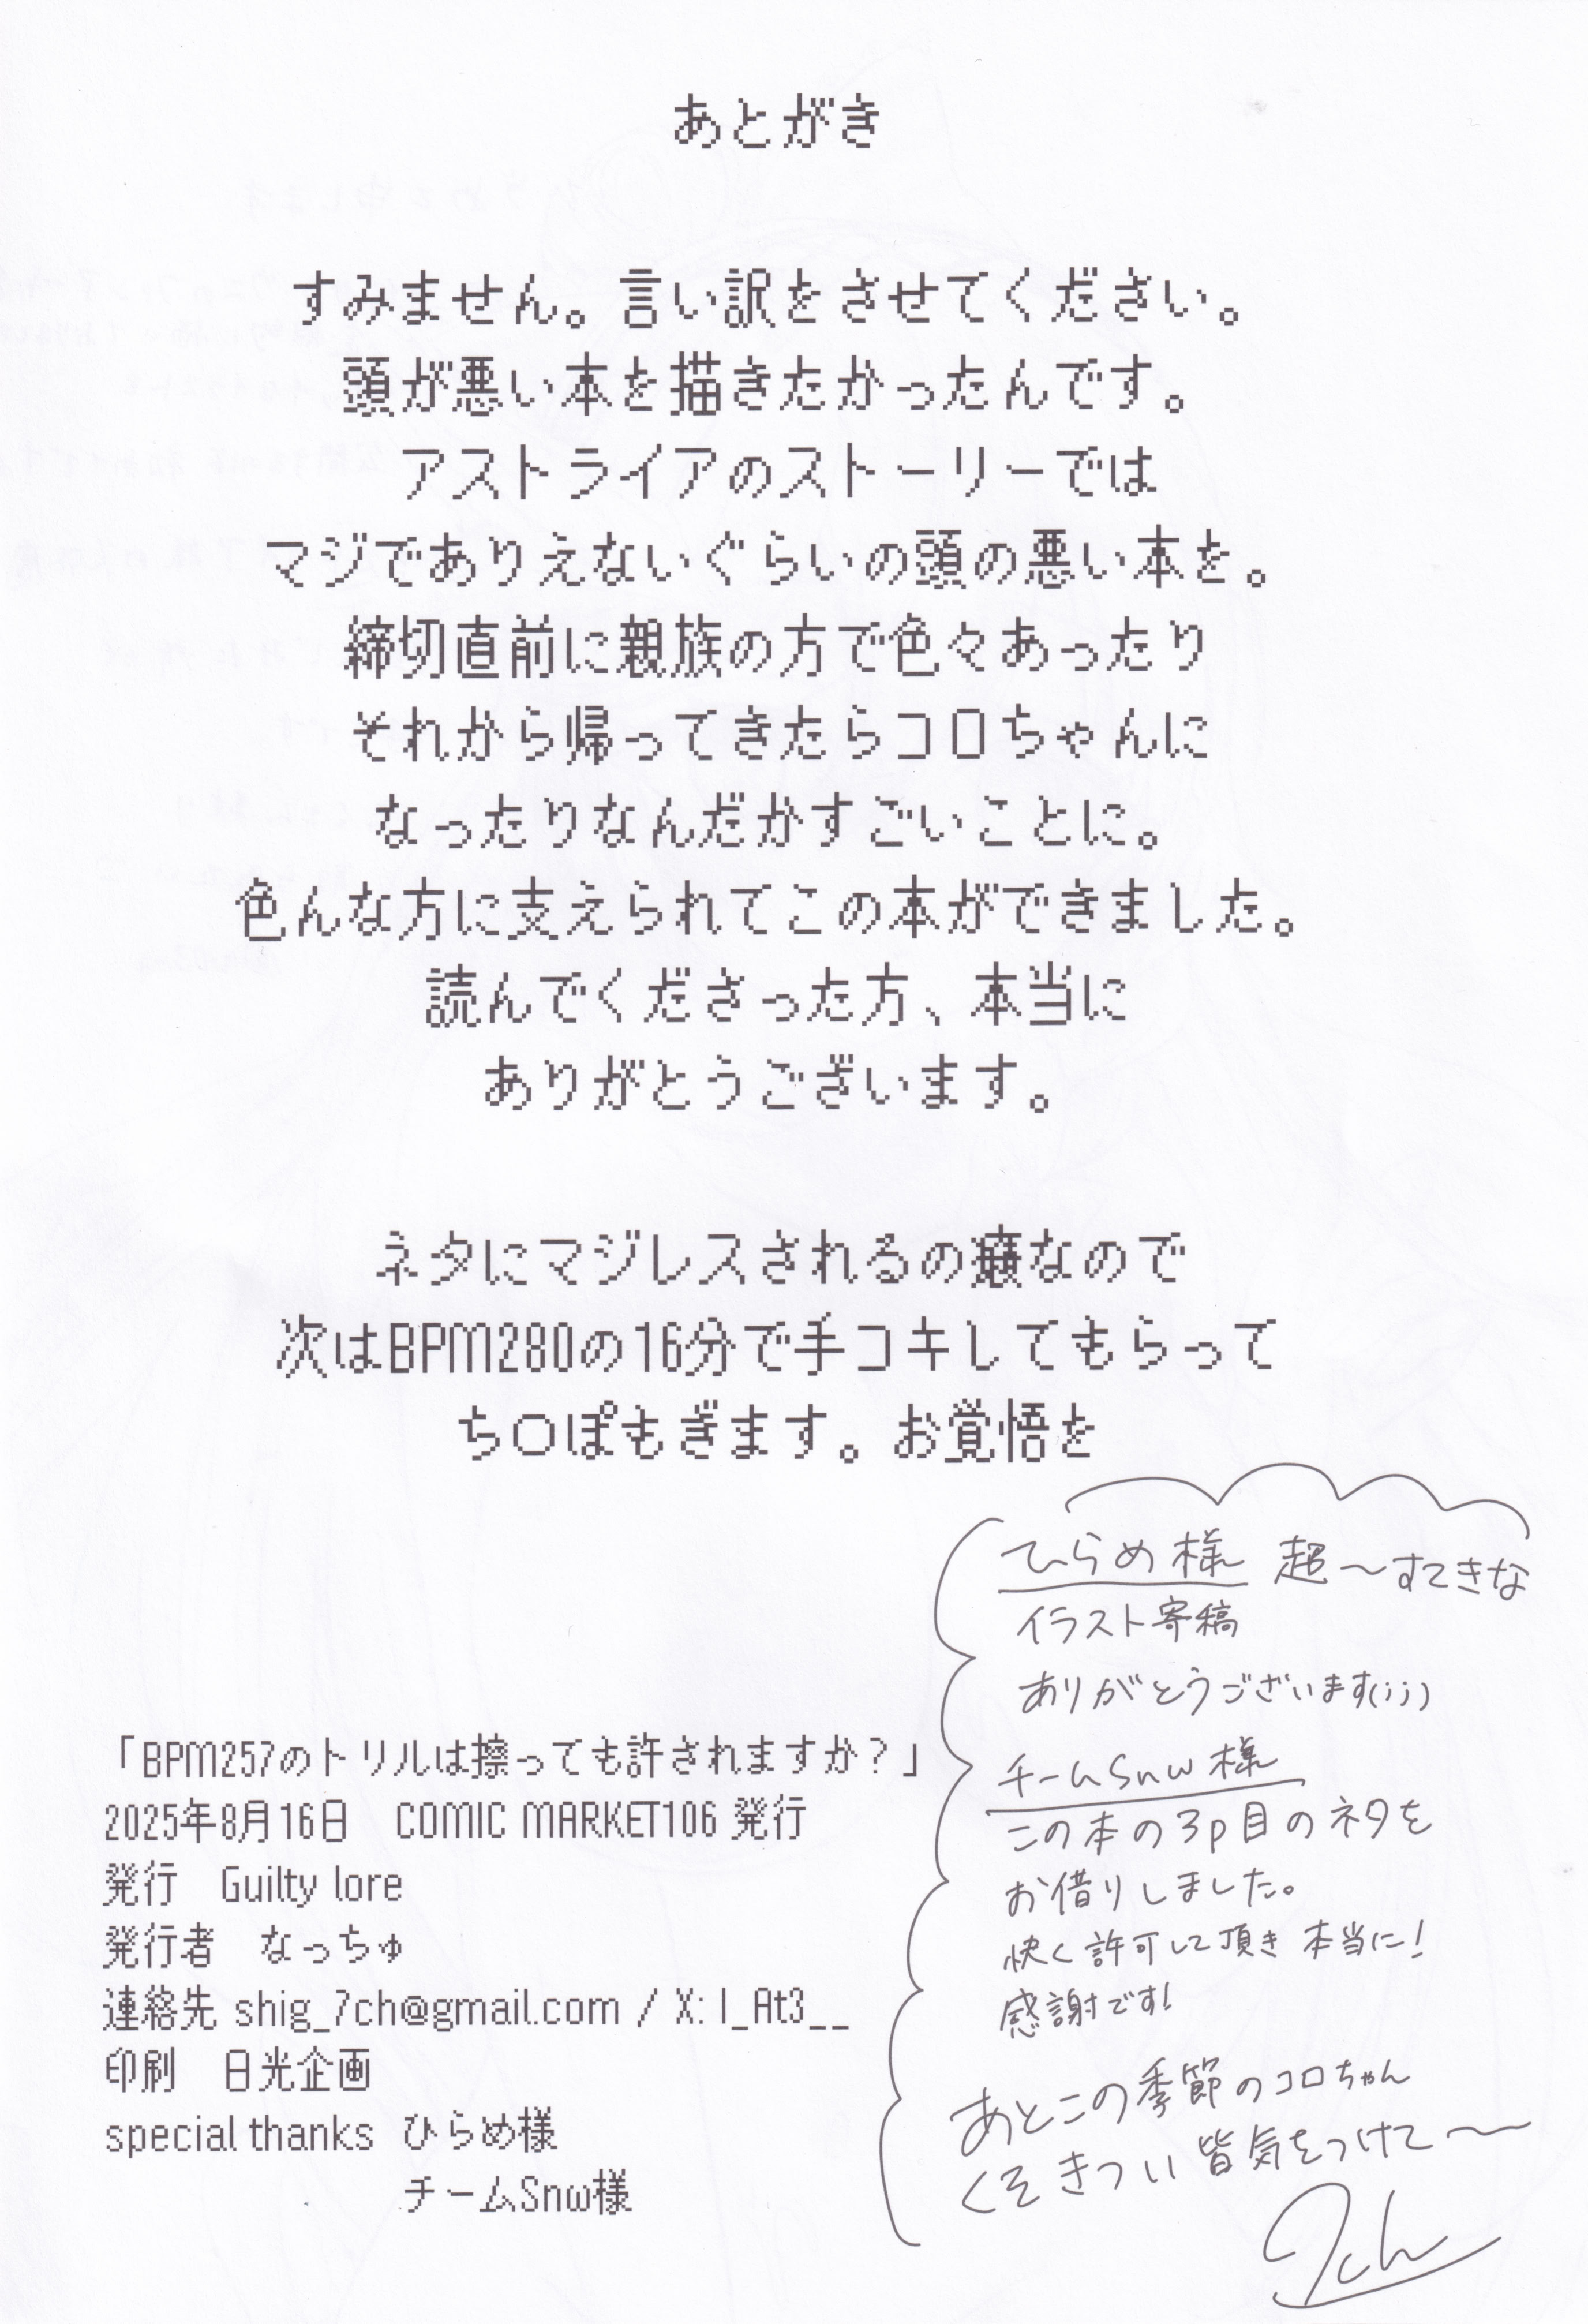 あとがき
すみません。言い訳をさせてください。
頭が悪い本を描きたかったんです。
アストライアのストーリーでは
マジでありえないぐらいの頭の悪い本を。
締切直前に親族の方で色々あったり
それから帰ってきたらコロちゃんに
なったりなんだかすごいことに。
色んな方に支えられてこの本ができました。
読んでくださった方、本当に
ありがとうございます。
ネタにマジレスされるの癪なので
次はBPM280の16分で手コキしてもらって
ち〇ぽもぎます。お覚悟を
「BPM257のトリルは擦っても許されますか？」
2025年8月16日　COMIC MARKET106 発行
発行　Guilty lore
発行者　なっちゅ
連絡先 shig_7ch@gmail.com / X: I_At3__
印刷　日光企画
special thanks　ひらめ様
チームSnw様
ひらめ様 超～すてきな
イラスト寄稿
ありがとうございます(;;)
チームSnw様
この本の3p目のネタを
お借りしました。
快く許可して頂き 本当に!
感謝です!
あとこの季節のコロちゃん
くそきつい皆気をつけて～
7ch